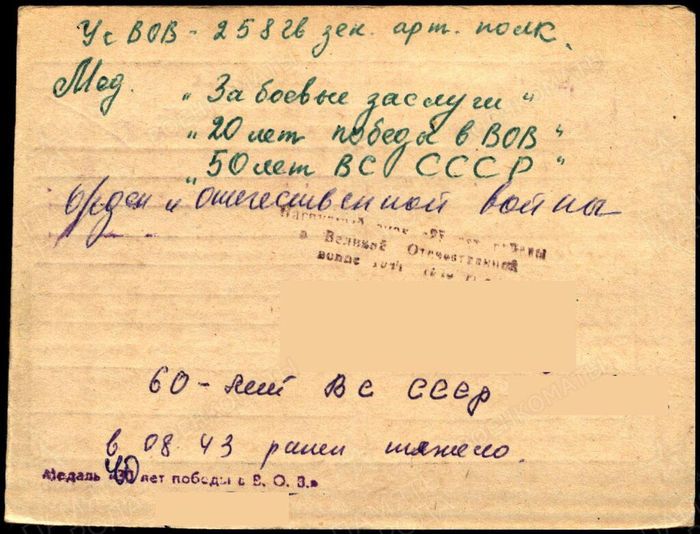 Уч ВОВ - 258 гв зен. арт. полк.
Мед. „За боевые заслуги"
„20 лет победы в ВОВ"
„50 лет ВС СССР"
Орден „Отечественной войны
Нагрудный знак «25 лет победы
в Великой Отечественной
войне 1941
60-лет ВС СССР
в 08 43 ранен тяжело.
Медаль «40 лет победы в В. О. В.»